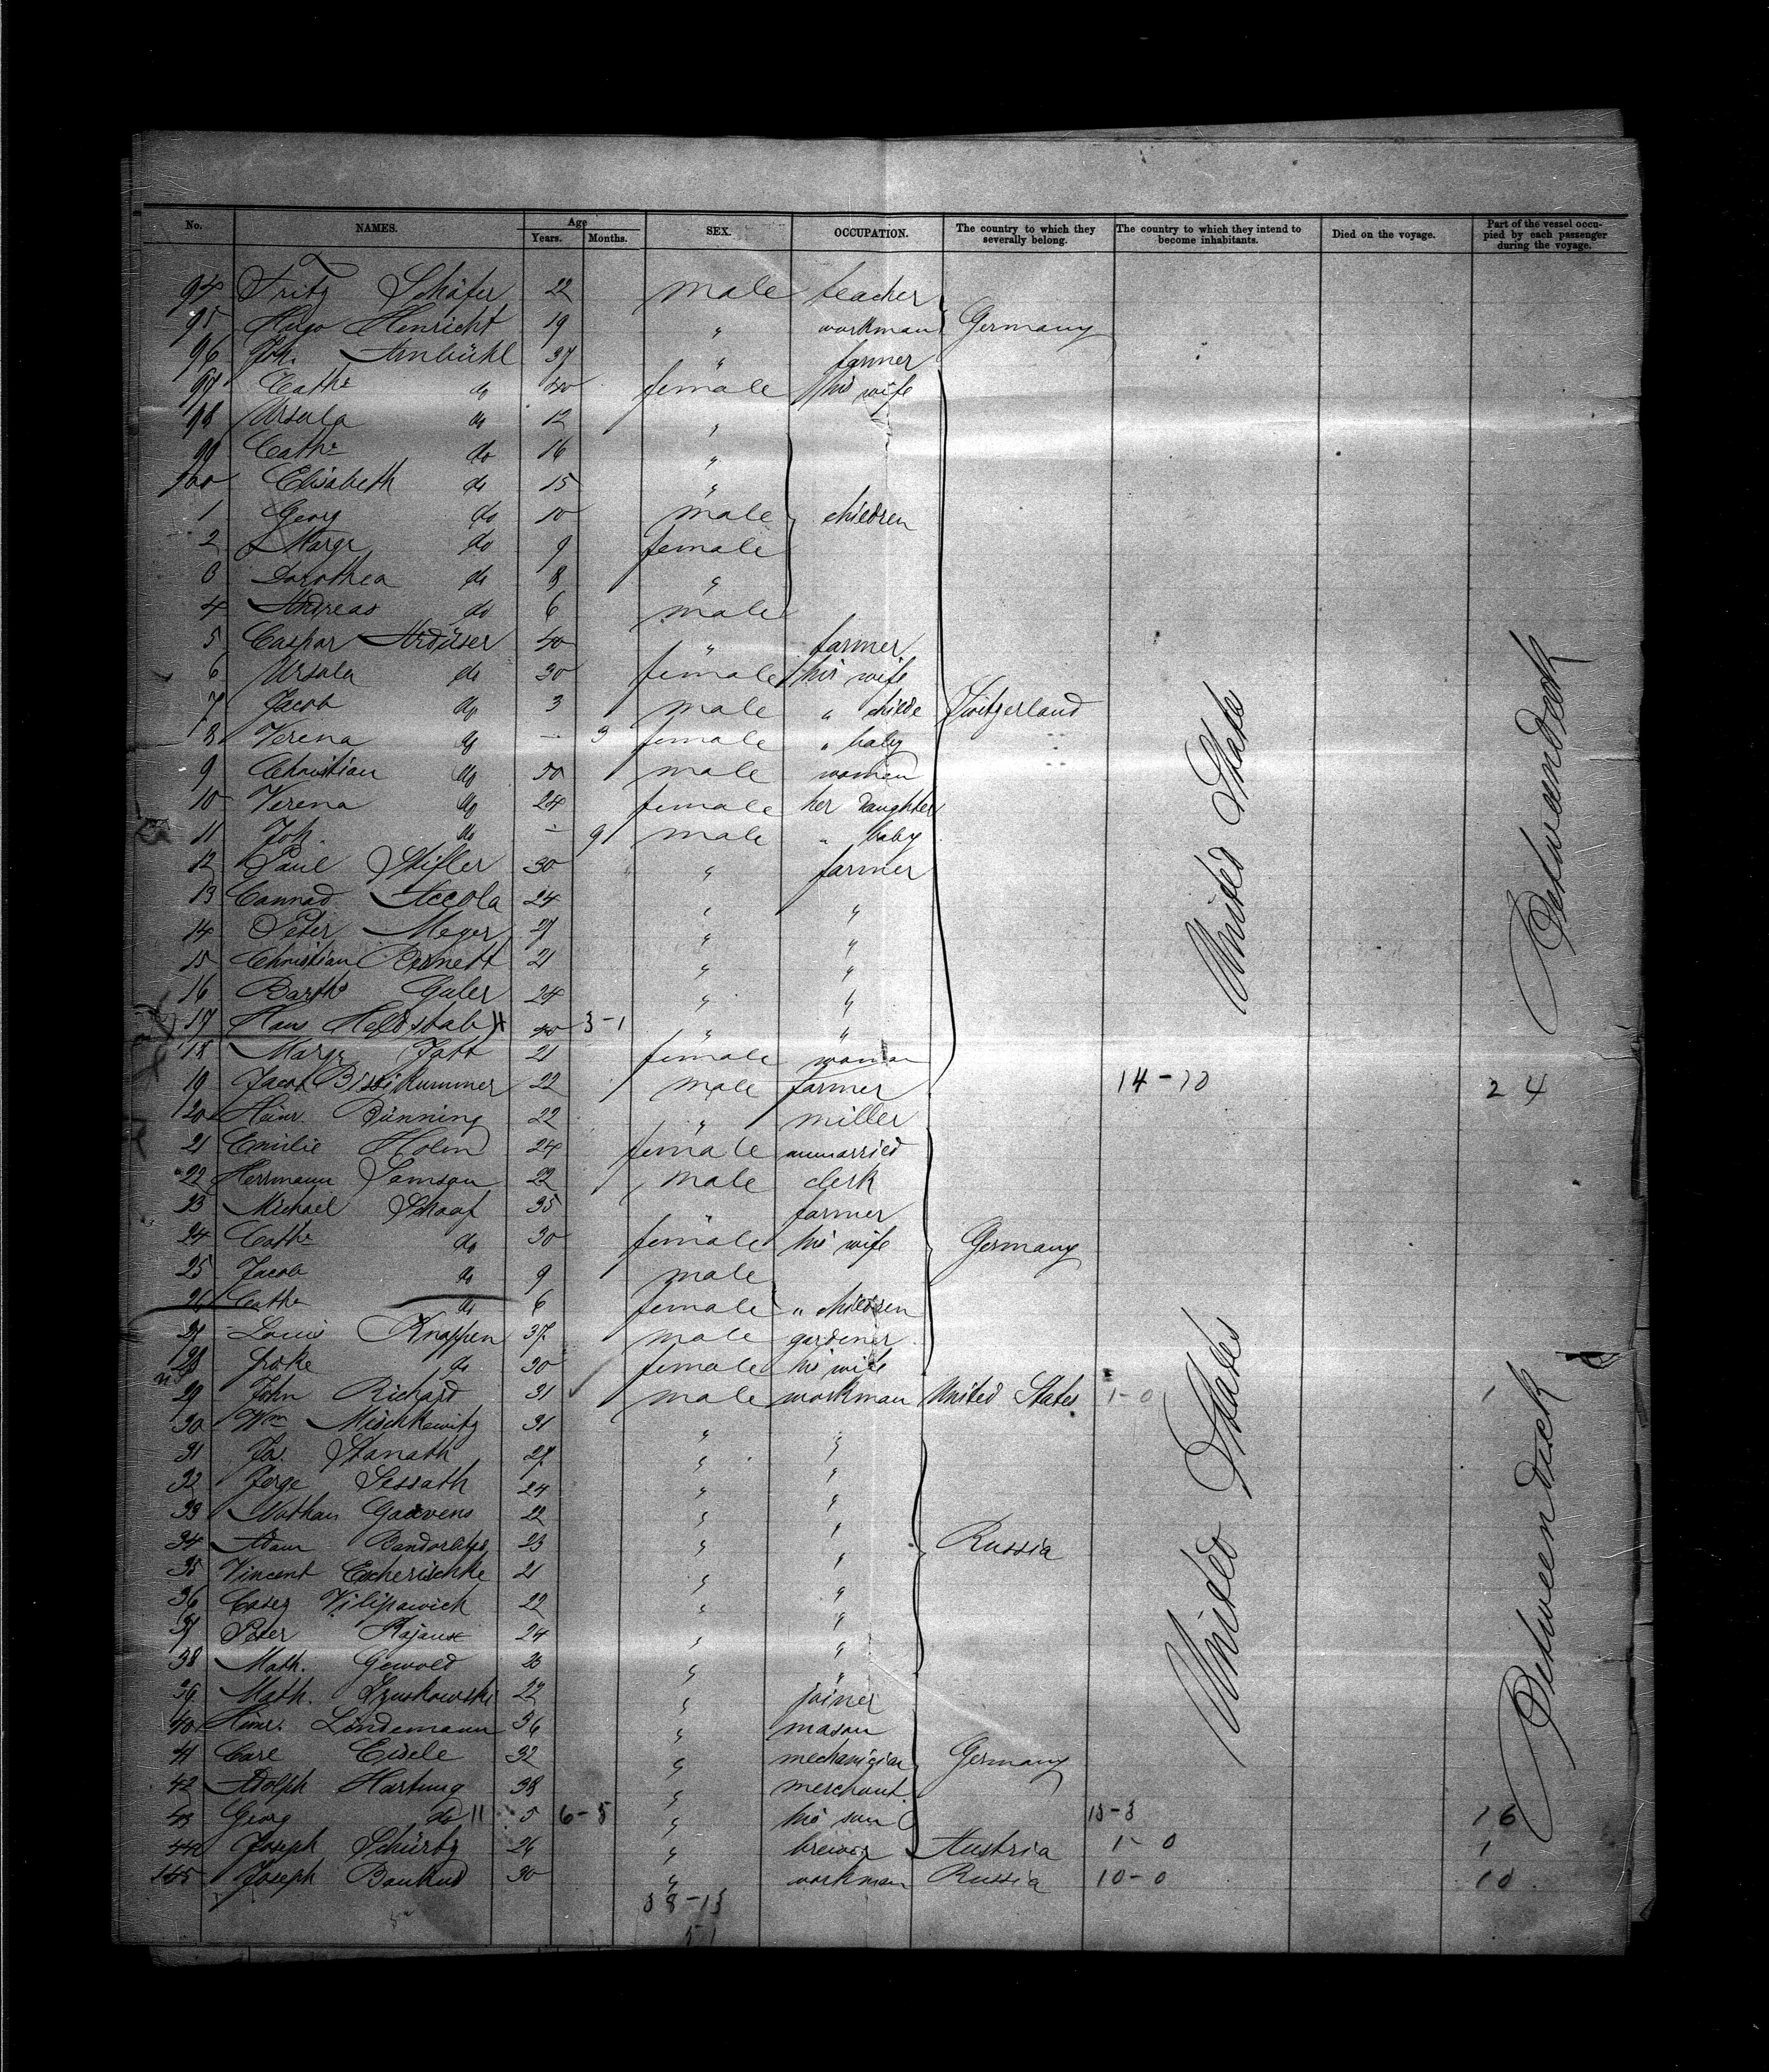 No. NAMES. Age Years. Months. SEX. OCCUPATION. The country to which they severally belong. The country to which they intend to become inhabitants. Died on the voyage. Part of the vessel occupied by each passenger during the voyage.
94 Fritz Schäfer 22 male teacher
95 Hugo Henricht 19 " workman Germany
96 Joh. Ambühl 37 " farmer
97 Cathe do 40 female his wife
98 Ursula do 12 "
99 Cathe do 16 "
100 Elisabeth do 15 "
1 Georg do 10 male children
2 Marge do 9 female
3 Dorothea do 8 "
4 Andreas do 6 male
5 Caspar Ardüser 40 " farmer
6 Ursula do 30 female his wife
7 Jacob do 3 male " childe Switzerland
8 Verena do - 3 female " baby
9 Christian do 50 male woman
10 Verena do 24 female her daughter
11 Joh. do - 9 male " baby
12 Paul Stifler 30 " farmer
13 Connad Accola 24 " "
14 Peter Meyer 27 " "
15 Christian 21 " "
16 Barths Guler 24 " "
17 Hans Heldstab 40 3-1 " "
18 Marge Jost 21 female woman
19 Jacob Bissikummer 22 male farmer 14-10 24
20 Heinr. Bünning 22 " miller
21 Emilie Holm 24 female unmarried
22 Herrmann Samson 22 male clerk
23 Michael Schaaf 35 farmer
24 Cathe do 30 female his wife Germany
25 Jacob do 9 male
26 Cathe do 6 female " children
27 Louis Knappen 37 male gardener
28 do 30 female his wife
29 John Richard 31 male workman United States 1-0 1
30 Wm Mischkewitz 31 " "
31 Jos. Stanath 27 " "
32 Jerge Sessath 24 " "
33 Nothan 22 " "
34 Adam 23 " " Russia
35 Vincent Escherischke 21 " "
36 Casez Vilipawich 22 " "
37 Peter 24 " "
38 Math. Gewold 23 " "
39 Math. 22 " joiner
40 Heinr. Lindemann 36 " mason
41 Carl Eisele 32 " mechanician Germany
42 Adolph Hartung 38 " merchant
43 Georg do 5 6-5 " his son 13-3 16
44 Joseph Schürtz 26 " brewer Austria 1-0 1
145 Joseph 30 " workman Russia 10-0 10
38-13
51
United States
United States
Betweendeck
Betweendeck